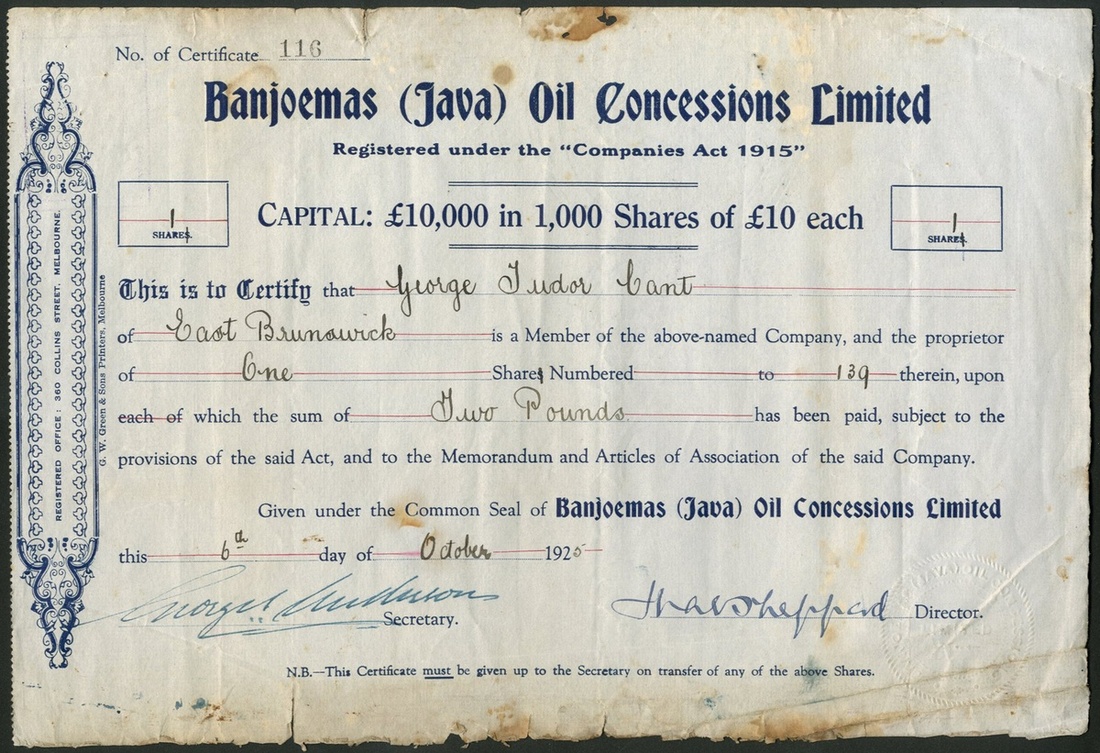 No. of Certificate 116
Banjoemas (Java) Oil Concessions Limited
Registered under the "Companies Act 1915"
1
SHARES
CAPITAL: £10,000 in 1,000 Shares of £10 each
1
SHARES
This is to Certify that George Tudor Cant
of East Brunswick is a Member of the above-named Company, and the proprietor
of One Shares Numbered to 139 therein, upon
each of which the sum of Two Pounds has been paid, subject to the
provisions of the said Act, and to the Memorandum and Articles of Association of the said Company.
Given under the Common Seal of Banjoemas (Java) Oil Concessions Limited
this 6th day of October 1925
Secretary.
Sheppard Director.
N.B.—This Certificate must be given up to the Secretary on transfer of any of the above Shares.
REGISTERED OFFICE: 360 COLLINS STREET, MELBOURNE.
G. W. Green & Sons Printers, Melbourne